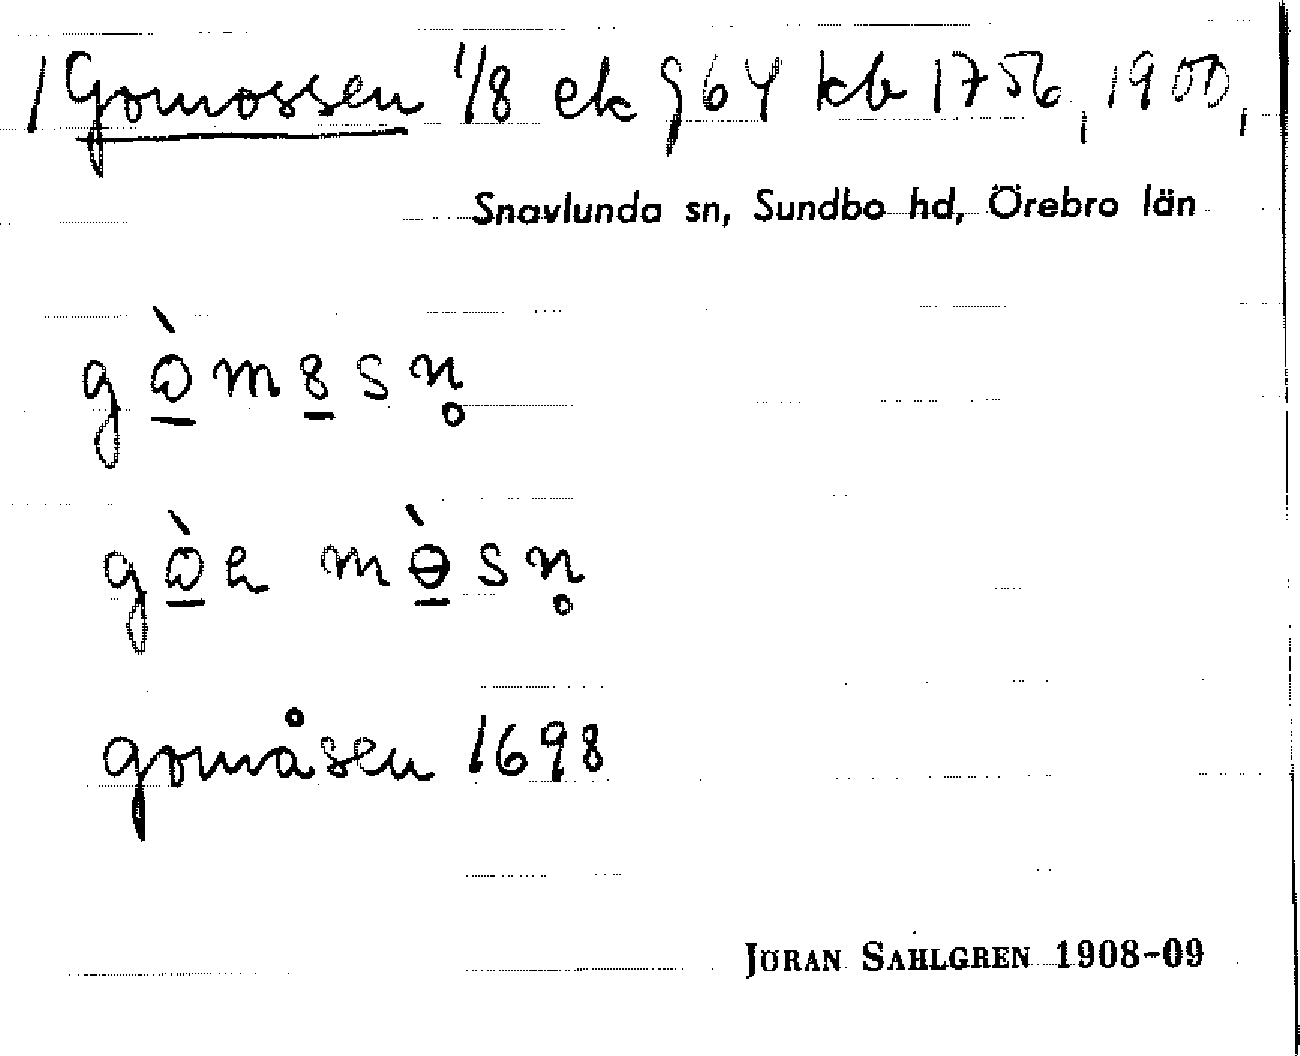 1 Gomossen 1/8 ek § 64 kb 1756, 1900,
Snavlunda sn, Sundbo hd, Örebro län
gò̲m8̲sn̥
gò̲e mɵ̲̀sn̥
gomåsen 1698
JÖRAN SAHLGREN 1908-09